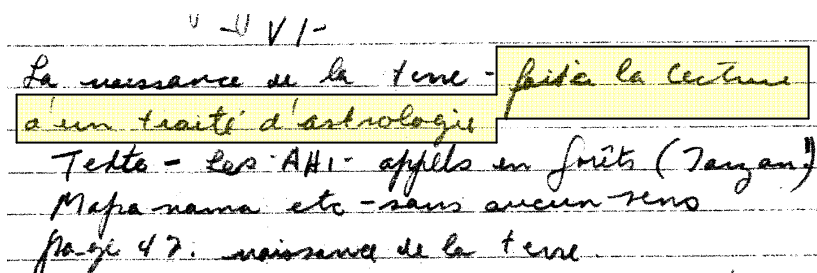 VI-
La naissance de la terre - fait à la lecture
d'un traité d'astrologie
Texte - Les AHI - appels en forêts (Tarzan!)
Mapa nama etc - sans aucun sens
page 47. naissance de la terre.